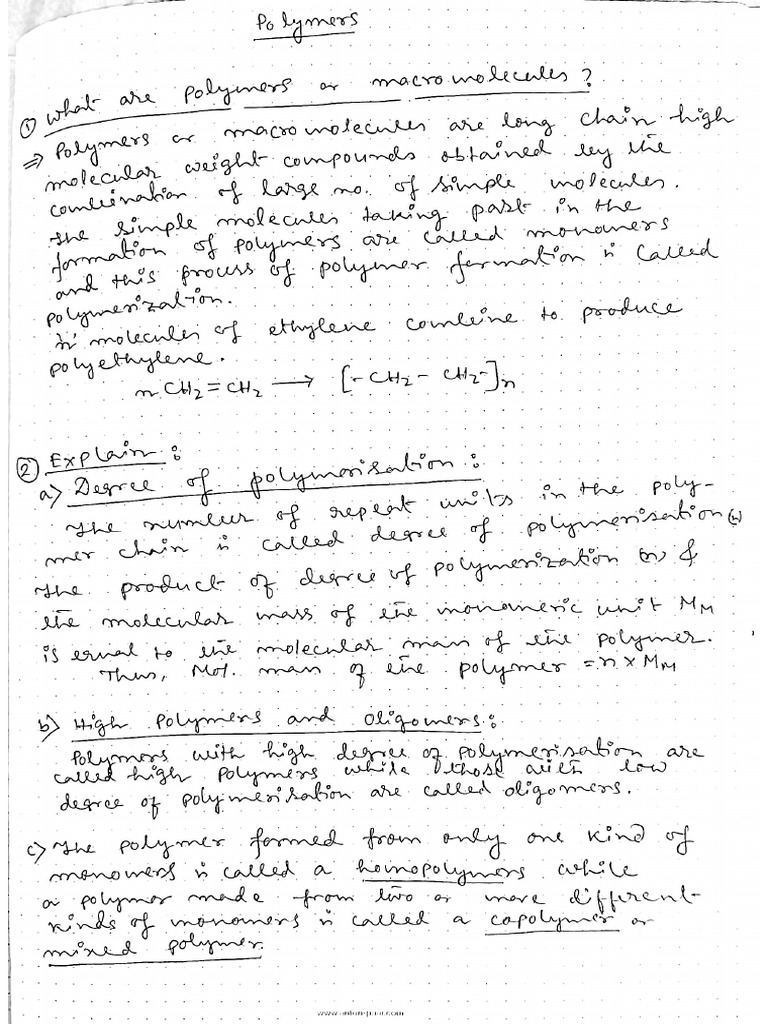 Polymers
① What are polymers or macromolecules?
⇒ Polymers or macromolecules are long chain high
molecular weight compounds obtained by the
combination of large no. of simple molecules.
The simple molecules taking part in the
formation of polymers are called monomers
and this process of polymer formation is called
polymerization.
'n' molecules of ethylene combine to produce
polyethylene.
n CH₂ = CH₂ ⟶ [-CH₂ - CH₂-]n
② Explain :
a) Degree of polymerisation :
The number of repeat units in the poly-
mer chain is called degree of polymerisation
The product of degree of polymerization (n) &
the molecular mass of the monomeric unit MM
is equal to the molecular mass of the polymer.
Thus, Mol. mass of the polymer = n × MM
b) High Polymers and Oligomers :
Polymers with high degree of polymerisation are
called high polymers while those with low
degree of polymerisation are called oligomers.
c) The polymer formed from only one kind of
monomers is called a homopolymers while
a polymer made from two or more different
kinds of monomers is called a copolymer or
mixed polymer.